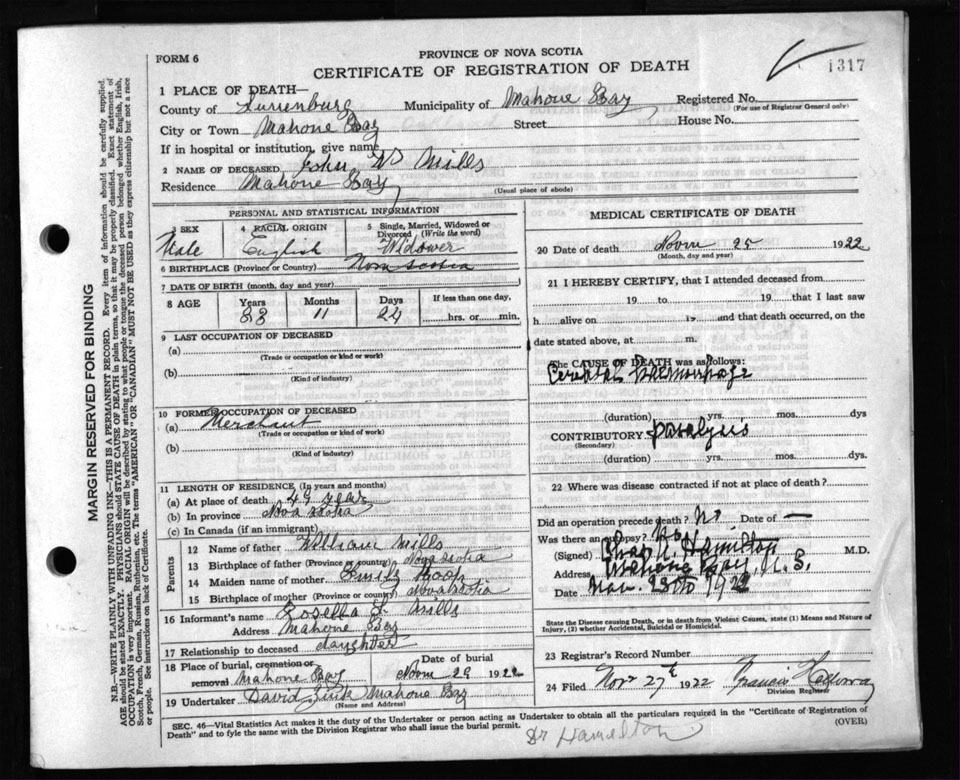 FORM 6
PROVINCE OF NOVA SCOTIA
CERTIFICATE OF REGISTRATION OF DEATH
1317
1 PLACE OF DEATH—
County of Lunenburg Municipality of Mahone Bay Registered No.
(For use of Registrar General only)
City or Town Mahone Bay Street House No.
If in hospital or institution, give name
2 NAME OF DECEASED John Wm Mills
Residence Mahone Bay
(Usual place of abode)
PERSONAL AND STATISTICAL INFORMATION
3 SEX 4 RACIAL ORIGIN 5 Single, Married, Widowed or Divorced (Write the word)
Male English Widower
6 BIRTHPLACE (Province or Country) Nova Scotia
7 DATE OF BIRTH (month, day and year)
8 AGE Years Months Days If less than one day,
83 11 24 hrs. or min.
9 LAST OCCUPATION OF DECEASED
(a)
(Trade or occupation or kind or work)
(b)
(Kind of industry)
10 FORMER OCCUPATION OF DECEASED
(a) Merchant
(Trade or occupation or kind or work)
(b)
(Kind of industry)
11 LENGTH OF RESIDENCE (In years and months)
(a) At place of death 49 year
(b) In province Nova Scotia
(c) In Canada (if an immigrant)
Parents
12 Name of father William Mills
13 Birthplace of father (Province or country) Nova Scotia
14 Maiden name of mother Emily
15 Birthplace of mother (Province or country) Nova Scotia
16 Informant's name Rosella Mills
Address Mahone Bay
17 Relationship to deceased daughter
18 Place of burial, cremation or removal Mahone Bay Date of burial Novm 29 1922
19 Undertaker David Zink Mahone Bay
(Name and Address)
MEDICAL CERTIFICATE OF DEATH
20 Date of death Novm 25 1922
(Month, day and year)
21 I HEREBY CERTIFY, that I attended deceased from
19 to 19 that I last saw
h alive on 19 and that death occurred, on the
date stated above, at m.
The CAUSE OF DEATH was as follows:
Cerebral Haemorrhage
(duration) yrs. mos. dys
CONTRIBUTORY paralysis
(Secondary)
(duration) yrs. mos. dys.
22 Where was disease contracted if not at place of death?
Did an operation precede death? No Date of —
Was there an autopsy? No
(Signed) Chas. Hamilton M.D.
Address Mahone Bay, N.S.
Date Nov. 28th 1922
State the Disease causing Death, or in death from Violent Causes, state (1) Means and Nature of
Injury, (2) whether Accidental, Suicidal or Homicidal.
23 Registrar's Record Number
24 Filed Nov 27th 1922 Francis
Division Registrar
SEC. 46—Vital Statistics Act makes it the duty of the Undertaker or person acting as Undertaker to obtain all the particulars required in the "Certificate of Registration of
Death" and to fyle the same with the Division Registrar who shall issue the burial permit. (OVER)
Dr Hamilton
MARGIN RESERVED FOR BINDING
N.B.—WRITE PLAINLY WITH UNFADING INK—THIS IS A PERMANENT RECORD. Every item of information should be carefully supplied.
AGE should be stated EXACTLY. PHYSICIANS should STATE CAUSE OF DEATH in plain terms, so that it may be properly classified. Exact statement of
OCCUPATION is very important. RACIAL ORIGIN will be described by stating to what people or tongue the deceased person belonged whether English, Irish,
Scotch, French, German, Russian, Ruthenian, etc. The terms "AMERICAN" OR "CANADIAN" MUST NOT BE USED as they express citizenship but not a race
or people. See instructions on back of Certificate.